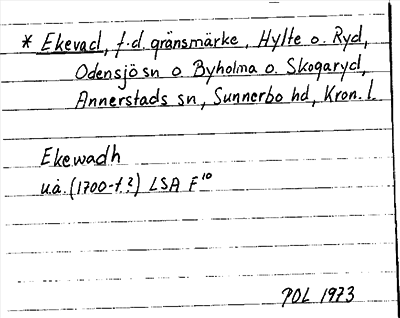 * Ekevad, f.d. gränsmärke, Hylte o. Ryd,
Odensjö sn o. Byholma o. Skogaryd,
Annerstads sn, Sunnerbo hd, Kron. l.
Ekewadh
u.å. (1700-t.?) LSA F¹⁰
POL 1973